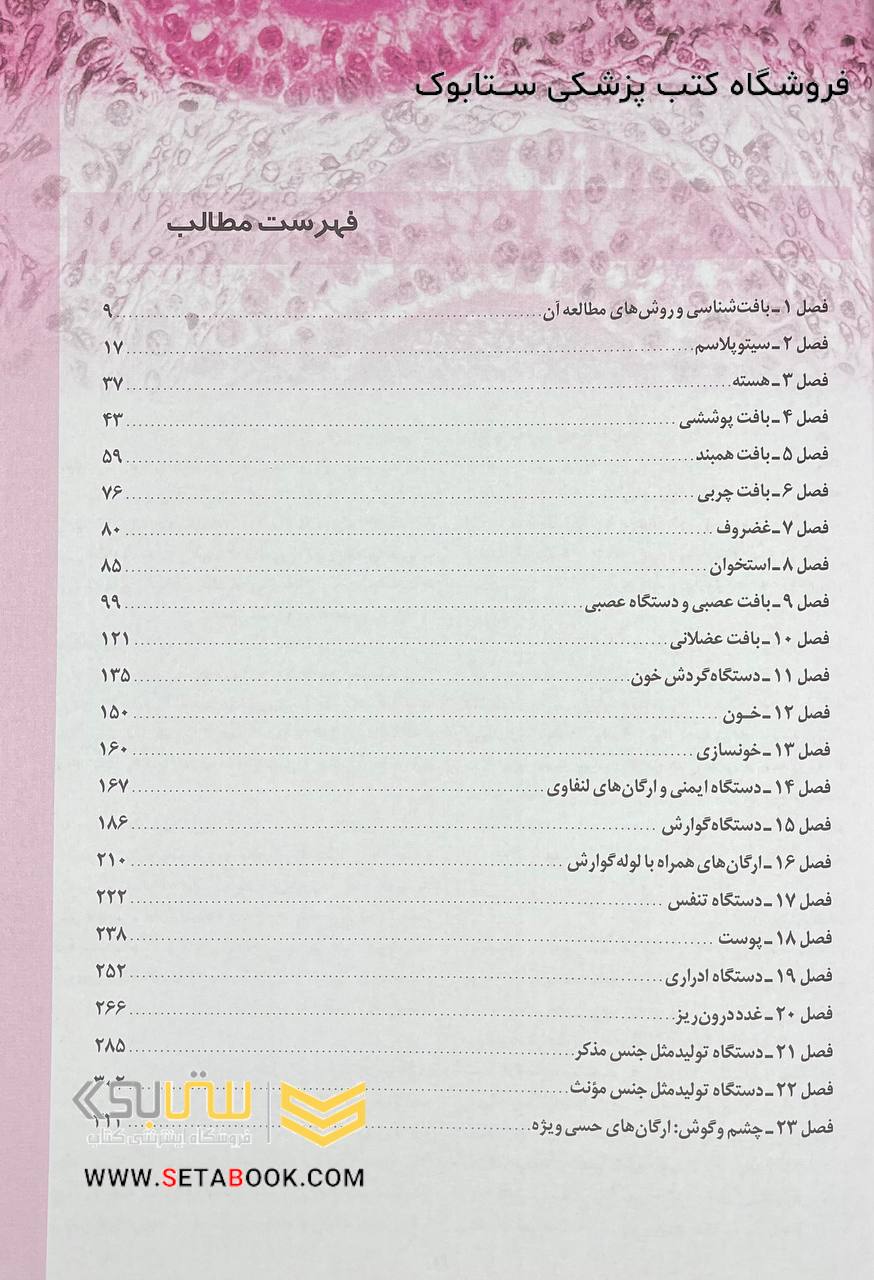 فروشگاه کتب پزشکی ستابوک
فهرست مطالب
فصل ۱ ـ بافت‌شناسی و روش‌های مطالعه آن ۹
فصل ۲ ـ سیتوپلاسم ۱۷
فصل ۳ ـ هسته ۳۷
فصل ۴ ـ بافت پوششی ۴۳
فصل ۵ ـ بافت همبند ۵۹
فصل ۶ ـ بافت چربی ۷۶
فصل ۷ ـ غضروف ۸۰
فصل ۸ ـ استخوان ۸۵
فصل ۹ ـ بافت عصبی و دستگاه عصبی ۹۹
فصل ۱۰ ـ بافت عضلانی ۱۲۱
فصل ۱۱ ـ دستگاه گردش خون ۱۳۵
فصل ۱۲ ـ خـون ۱۵۰
فصل ۱۳ ـ خونسازی ۱۶۰
فصل ۱۴ ـ دستگاه ایمنی و ارگان‌های لنفاوی ۱۶۷
فصل ۱۵ ـ دستگاه گوارش ۱۸۶
فصل ۱۶ ـ ارگان‌های همراه با لوله گوارش ۲۱۰
فصل ۱۷ ـ دستگاه تنفس ۲۲۲
فصل ۱۸ ـ پوست ۲۳۸
فصل ۱۹ ـ دستگاه ادراری ۲۵۲
فصل ۲۰ ـ غدد درون‌ریز ۲۶۶
فصل ۲۱ ـ دستگاه تولیدمثل جنس مذکر ۲۸۵
فصل ۲۲ ـ دستگاه تولیدمثل جنس مؤنث
فصل ۲۳ ـ چشم و گوش: ارگان‌های حسی ویژه
ستابوک
فروشگاه اینترنتی کتاب
WWW.SETABOOK.COM